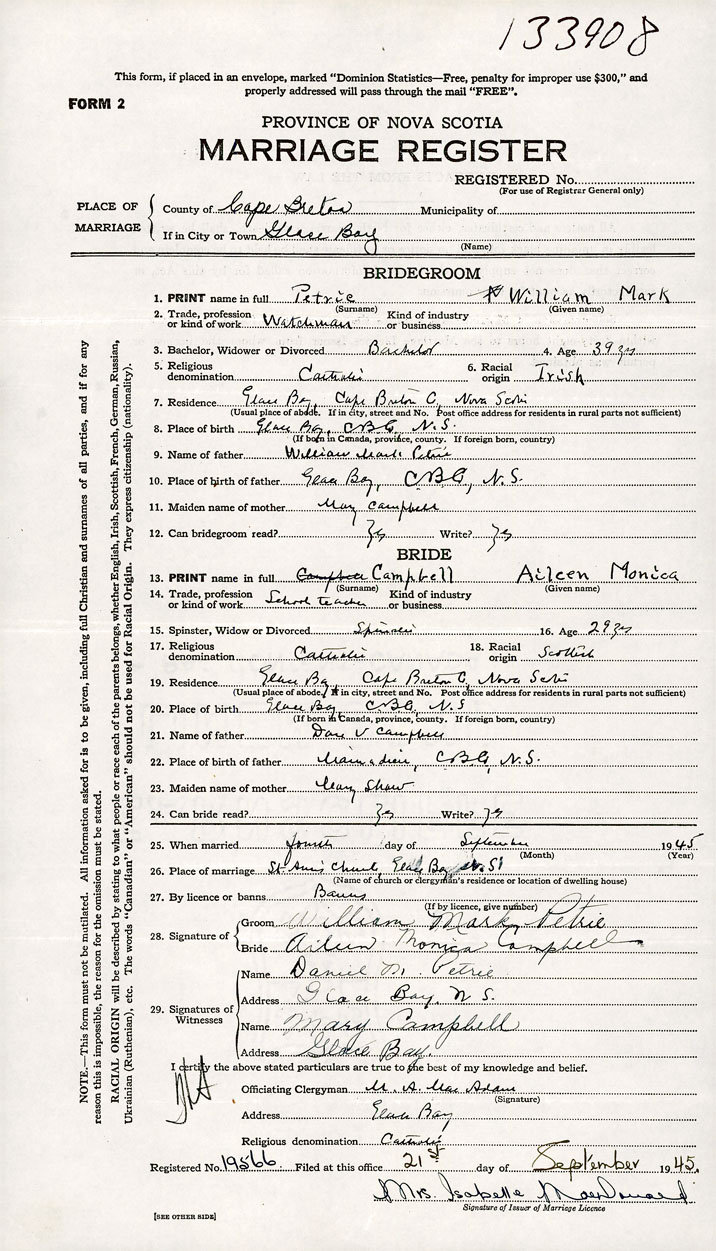 133908
This form, if placed in an envelope, marked “Dominion Statistics—Free, penalty for improper use $300,” and
properly addressed will pass through the mail “FREE”.
FORM 2
PROVINCE OF NOVA SCOTIA
MARRIAGE REGISTER
REGISTERED No.
(For use of Registrar General only)
PLACE OF MARRIAGE
County of Cape Breton Municipality of
If in City or Town Glace Bay
(Name)
BRIDEGROOM
1. PRINT name in full Petrie William Mark
(Surname) (Given name)
2. Trade, profession or kind of work Watchman Kind of industry or business
3. Bachelor, Widower or Divorced Bachelor 4. Age 39 yrs
5. Religious denomination Catholic 6. Racial origin Irish
7. Residence Glace Bay, Cape Breton C, Nova Scotia
(Usual place of abode. If in city, street and No. Post office address for residents in rural parts not sufficient)
8. Place of birth Glace Bay, CBC, N.S.
(If born in Canada, province, county. If foreign born, country)
9. Name of father William Mark Petrie
10. Place of birth of father Glace Bay, CBC, N.S.
11. Maiden name of mother Mary Campbell
12. Can bridegroom read? Yes Write? Yes
BRIDE
13. PRINT name in full Campbell Campbell Aileen Monica
(Surname) (Given name)
14. Trade, profession or kind of work School teacher Kind of industry or business
15. Spinster, Widow or Divorced Spinster 16. Age 29 yrs
17. Religious denomination Catholic 18. Racial origin Scottish
19. Residence Glace Bay, Cape Breton C, Nova Scotia
(Usual place of abode. If in city, street and No. Post office address for residents in rural parts not sufficient)
20. Place of birth Glace Bay, CBC, N.S
(If born in Canada, province, county. If foreign born, country)
21. Name of father Dan V Campbell
22. Place of birth of father Main a dieu, CBC, N.S.
23. Maiden name of mother Mary Shaw
24. Can bride read? Yes Write? Yes
25. When married fourth day of September 1945
(Month) (Year)
26. Place of marriage St Ann's Church, Glace Bay N.S.
(Name of church or clergyman's residence or location of dwelling house)
27. By licence or banns Banns
(If by licence, give number)
28. Signature of
Groom William Mark Petrie
Bride Aileen Monica Campbell
29. Signatures of Witnesses
Name Daniel M. Petrie
Address Glace Bay, N S.
Name Mary Campbell
Address Glace Bay.
I certify the above stated particulars are true to the best of my knowledge and belief.
Officiating Clergyman M. A. MacAdam
(Signature)
Address Glace Bay
Religious denomination Catholic
Registered No. 19566 Filed at this office 21st day of September 1945.
Mrs. Isabelle MacDonald
Signature of Issuer of Marriage Licence
[SEE OTHER SIDE]
NOTE.—This form must not be mutilated. All information asked for is to be given, including full Christian and surnames of all parties, and if for any
reason this is impossible, the reason for the omission must be stated.
RACIAL ORIGIN will be described by stating to what people or race each of the parents belongs, whether English, Irish, Scottish, French, German, Russian,
Ukrainian (Ruthenian), etc. The words “Canadian” or “American” should not be used for Racial Origin. They express citizenship (nationality).